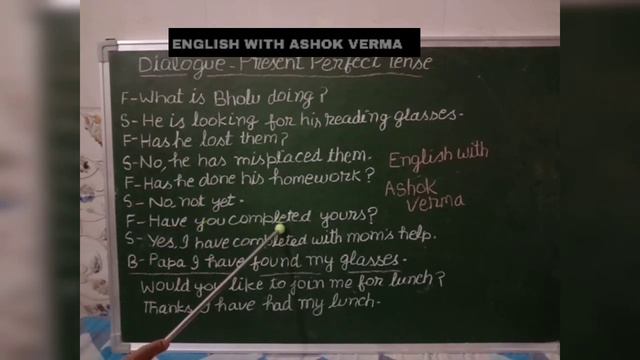 ENGLISH WITH ASHOK VERMA
Dialogue - Present Perfect Tense
F- What is Bholu doing?
S- He is looking for his reading glasses.
F- Has he lost them?
S- No, he has misplaced them.
F- Has he done his homework?
S- No, not yet.
F- Have you completed yours?
S- Yes, I have completed with mom's help.
B- Papa I have found my glasses.
Would you like to join me for lunch?
Thanks, I have had my lunch.
English with
Ashok
Verma